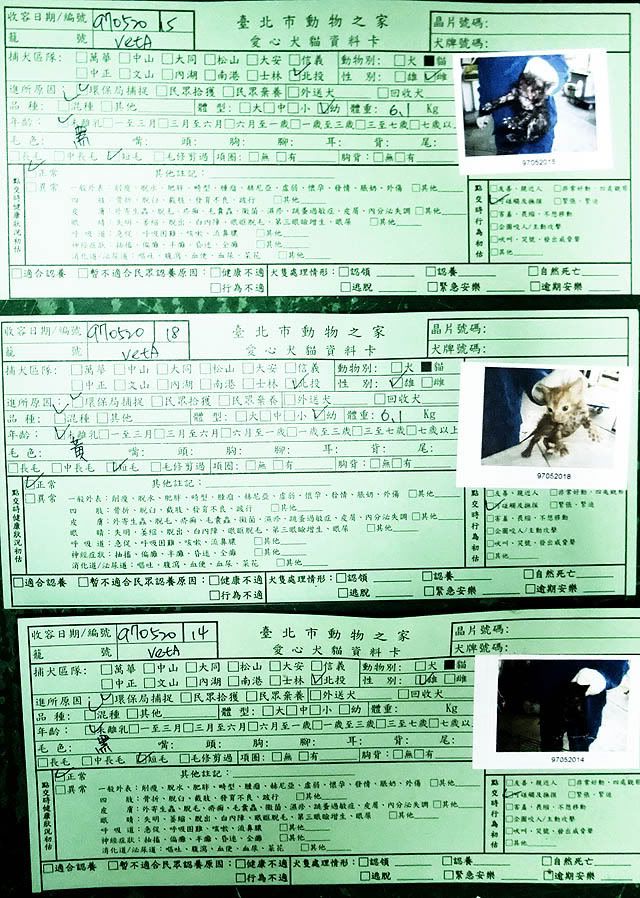 收容日期/編號 970520 15 臺北市動物之家 晶片號碼:
籠 號 VetA 愛心犬貓資料卡 犬牌號碼:
捕犬區隊: □萬華 □中山 □大同 □松山 □大安 □信義 動物別: □犬 ■貓
□中正 □文山 □內湖 □南港 □士林 ☑北投 性 別: □雄 ☑雌
進所原因: ☑環保局捕捉 □民眾拾獲 □民眾棄養 □外送犬 □回收犬
品 種: ☑混種 □其他 體 型: □大 □中 □小 ☑幼 體重: 0.1 Kg
年齡: ☑未離乳 □一至三月 □三月至六月 □六月至一歲 □一歲至三歲 □三歲至七歲 □七歲以上
毛 色: 黑 嘴: 頭: 胸: 腳: 耳: 背: 尾:
□長毛 □中長毛 ☑短毛 □毛修剪過 項圈: □無 □有 胸背: □無 □有
97052015
點交時健康狀況初估
☑正常 其他註記:
□異常 一般外表: 削瘦、脫水、肥胖、畸型、腫瘤、赫尼亞、虛弱、懷孕、發情、脹奶、外傷 □其他
四 肢: 骨折、脫臼、截肢、發育不良、跛行 □其他
皮 膚: 外寄生蟲、脫毛、疥癬、毛囊蟲、黴菌、濕疹、跳蚤過敏症、皮屑、內分泌失調 □其他
眼 睛: 失明、萎縮、脫出、白內障、眼瞼脫毛、第三眼瞼增生、眼屎 □其他
呼 吸 道: 急促、呼吸困難、咳嗽、流鼻膿 □其他
神經症狀: 抽搐、偏癱、半癱、昏迷、全癱 □其他
消化道/泌尿道: 嘔吐、腹瀉、血便、血尿、菜花 □其他
點交時行為初估
□友善、親近人 □非常好動、四處觀
☑可碰觸及擁抱 □緊張、緊迫
□害羞、畏縮、不想移動
□企圖咬人/主動攻擊
□吠叫、哭號、發出威脅聲
□其他
□適合認養 □暫不適合民眾認養原因: □健康不適 犬隻處理情形: □認領 □認養 □自然死亡
□行為不適 □逃脫 □緊急安樂 □逾期安樂
收容日期/編號 970520 18 臺北市動物之家 晶片號碼:
籠 號 VetA 愛心犬貓資料卡 犬牌號碼:
捕犬區隊: □萬華 □中山 □大同 □松山 □大安 □信義 動物別: □犬 ■貓
□中正 □文山 □內湖 □南港 □士林 ☑北投 性 別: ☑雄 □雌
進所原因: ☑環保局捕捉 □民眾拾獲 □民眾棄養 □外送犬 □回收犬
品 種: ☑混種 □其他 體 型: □大 □中 □小 ☑幼 體重: 0.1 Kg
年齡: ☑未離乳 □一至三月 □三月至六月 □六月至一歲 □一歲至三歲 □三歲至七歲 □七歲以上
毛 色: 黃 嘴: 頭: 胸: 腳: 耳: 背: 尾:
□長毛 □中長毛 ☑短毛 □毛修剪過 項圈: □無 □有 胸背: □無 □有
97052018
點交時健康狀況初估
☑正常 其他註記:
□異常 一般外表: 削瘦、脫水、肥胖、畸型、腫瘤、赫尼亞、虛弱、懷孕、發情、脹奶、外傷 □其他
四 肢: 骨折、脫臼、截肢、發育不良、跛行 □其他
皮 膚: 外寄生蟲、脫毛、疥癬、毛囊蟲、黴菌、濕疹、跳蚤過敏症、皮屑、內分泌失調 □其他
眼 睛: 失明、萎縮、脫出、白內障、眼瞼脫毛、第三眼瞼增生、眼屎 □其他
呼 吸 道: 急促、呼吸困難、咳嗽、流鼻膿 □其他
神經症狀: 抽搐、偏癱、半癱、昏迷、全癱 □其他
消化道/泌尿道: 嘔吐、腹瀉、血便、血尿、菜花 □其他
點交時行為初估
□友善、親近人 □非常好動、四處觀
☑可碰觸及擁抱 □緊張、緊迫
□害羞、畏縮、不想移動
□企圖咬人/主動攻擊
□吠叫、哭號、發出威脅聲
□其他
□適合認養 □暫不適合民眾認養原因: □健康不適 犬隻處理情形: □認領 □認養 □自然死亡
□行為不適 □逃脫 □緊急安樂 □逾期安樂
收容日期/編號 970520 14 臺北市動物之家 晶片號碼:
籠 號 VetA 愛心犬貓資料卡 犬牌號碼:
捕犬區隊: □萬華 □中山 □大同 □松山 □大安 □信義 動物別: □犬 ■貓
□中正 □文山 □內湖 □南港 □士林 ☑北投 性 別: ☑雄 □雌
進所原因: ☑環保局捕捉 □民眾拾獲 □民眾棄養 □外送犬 □回收犬
品 種: ☑混種 □其他 體 型: □大 □中 □小 □幼 體重: Kg
年齡: ☑未離乳 □一至三月 □三月至六月 □六月至一歲 □一歲至三歲 □三歲至七歲 □七歲以上
毛 色: 黑 嘴: 頭: 胸: 腳: 耳: 背: 尾:
□長毛 □中長毛 ☑短毛 □毛修剪過 項圈: □無 □有 胸背: □無 □有
97052014
點交時健康狀況初估
☑正常 其他註記:
□異常 一般外表: 削瘦、脫水、肥胖、畸型、腫瘤、赫尼亞、虛弱、懷孕、發情、脹奶、外傷 □其他
四 肢: 骨折、脫臼、截肢、發育不良、跛行 □其他
皮 膚: 外寄生蟲、脫毛、疥癬、毛囊蟲、黴菌、濕疹、跳蚤過敏症、皮屑、內分泌失調 □其他
眼 睛: 失明、萎縮、脫出、白內障、眼瞼脫毛、第三眼瞼增生、眼屎 □其他
呼 吸 道: 急促、呼吸困難、咳嗽、流鼻膿 □其他
神經症狀: 抽搐、偏癱、半癱、昏迷、全癱 □其他
消化道/泌尿道: 嘔吐、腹瀉、血便、血尿、菜花 □其他
點交時行為初估
□友善、親近人 □非常好動、四處觀
☑可碰觸及擁抱 □緊張、緊迫
□害羞、畏縮、不想移動
□企圖咬人/主動攻擊
□吠叫、哭號、發出威脅聲
□其他
□適合認養 □暫不適合民眾認養原因: □健康不適 犬隻處理情形: □認領 □認養 □自然死亡
□行為不適 □逃脫 □緊急安樂 □逾期安樂